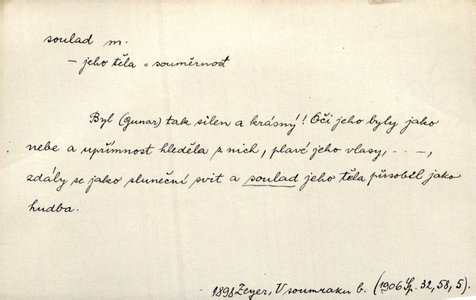 soulad m.
– jeho těla = souměrnost
Byl (Gunar) tak silen a krásný! Oči jeho byly jako
nebe a upřímnost hleděla z nich, plavé jeho vlasy, - - –,
zdály se jako sluneční svit a soulad jeho těla působil jako
hudba.
1898 Zeyer, V soumraku b. (1906 Sp. 32, 58, 5).